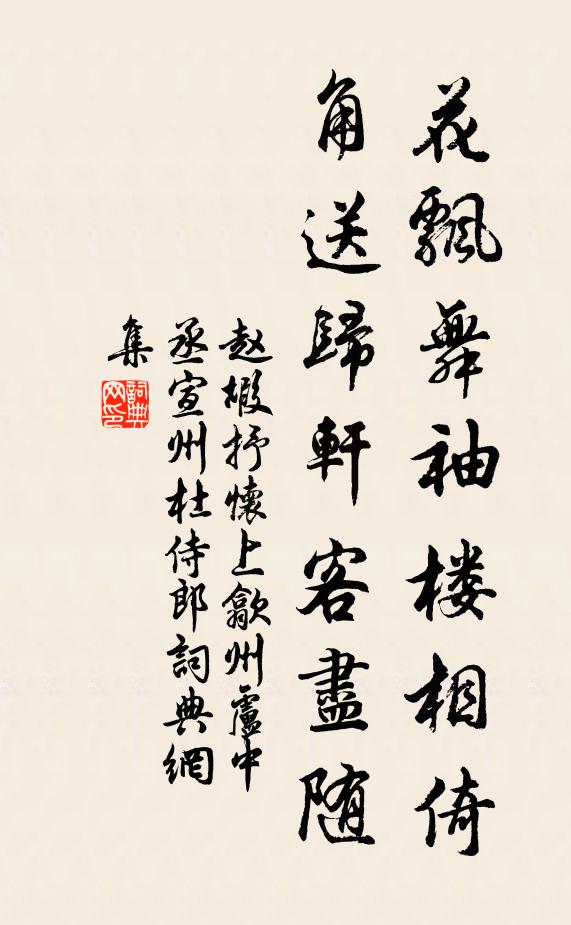 花飄舞袖楼相倚
角送歸軒客盡随
赵嘏抒懷上歙州盧中
丞宣州杜侍郎詞典網
集
詞典
网印